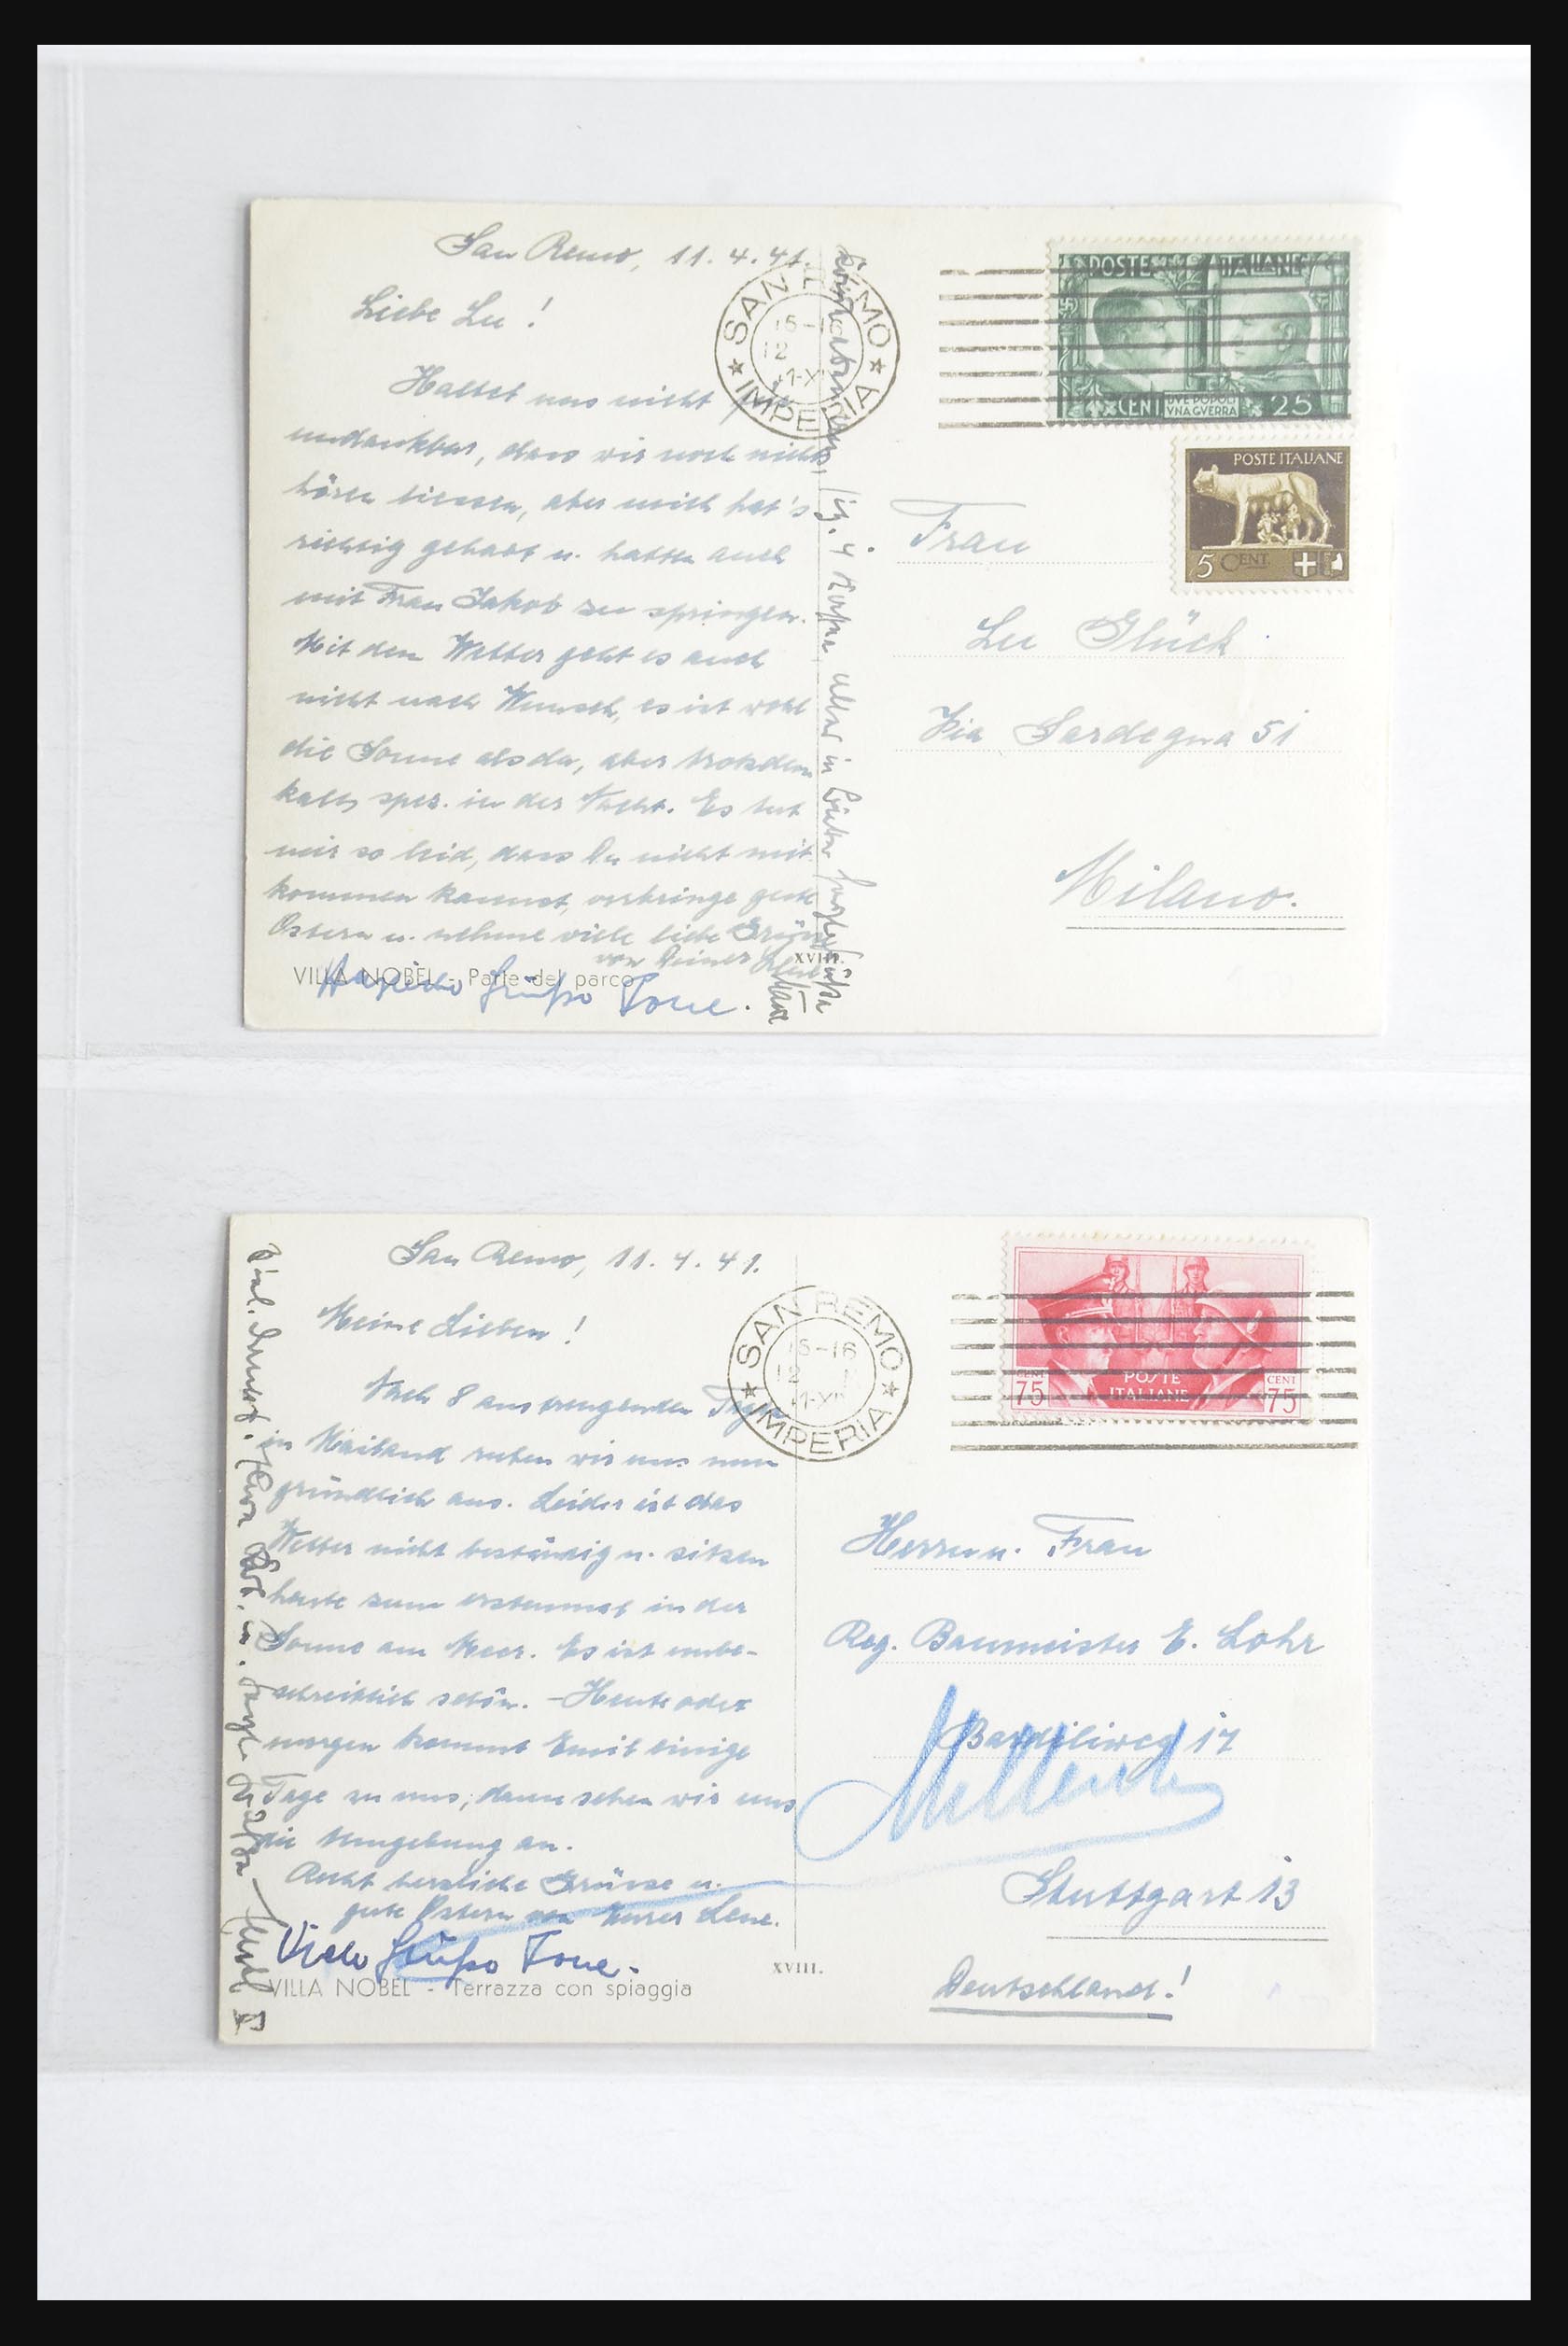 San Remo, 11.4.41.
Liebe Lu!
Haltet uns nicht für
undankbar, dass wir noch nichts
hören liessen, aber mich hat's
richtig gehabt u. hatten auch
mit Frau Jakob zu springen.
Mit dem Wetter geht es auch
nicht nach Wunsch, es ist wohl
die Sonne als da, aber trotzdem
kalt, spez. in der Nacht. Es tut
mir so leid, dass Du nicht mit
kommen kannst, verbringe gute
Ostern u. nehme viele liebe Grüsse
von Deiner Lene
Herzliche Grüße Tone.
VILLA NOBEL - Parte del parco
XVIII.
SAN REMO
15-16
12
41-XI
IMPERIA
POSTE ITALIANE
CENT
DVE POPOLI
VNA GVERRA
25
POSTE ITALIANE
5 CENT.
Frau
Lu Glück
Via Sardegna 51
Milano.
San Remo, 11.4.41.
Meine Lieben!
Nach 8 anstrengenden Tagen
in Mailand ruhen wir uns nun
gründlich aus. Leider ist das
Wetter nicht beständig u. sitzen
heute zum erstenmal in der
Sonne am Meer. Es ist unbe-
schreiblich schön. - Heute oder
morgen kommt Emil einige
Tage zu uns, dann sehen wir uns
die Umgebung an.
Recht herzliche Grüsse u.
gute Ostern von Eurer Lene.
Viele Grüße Tone.
VILLA NOBEL - Terrazza con spiaggia
XVIII.
SAN REMO
15-16
12
41-XI
IMPERIA
CENT
75
POSTE
ITALIANE
CENT
75
Herrn u. Frau
Reg. Baumeister E. Lohr
Bardiliweg 17
Stuttgart 13
Deutschland!